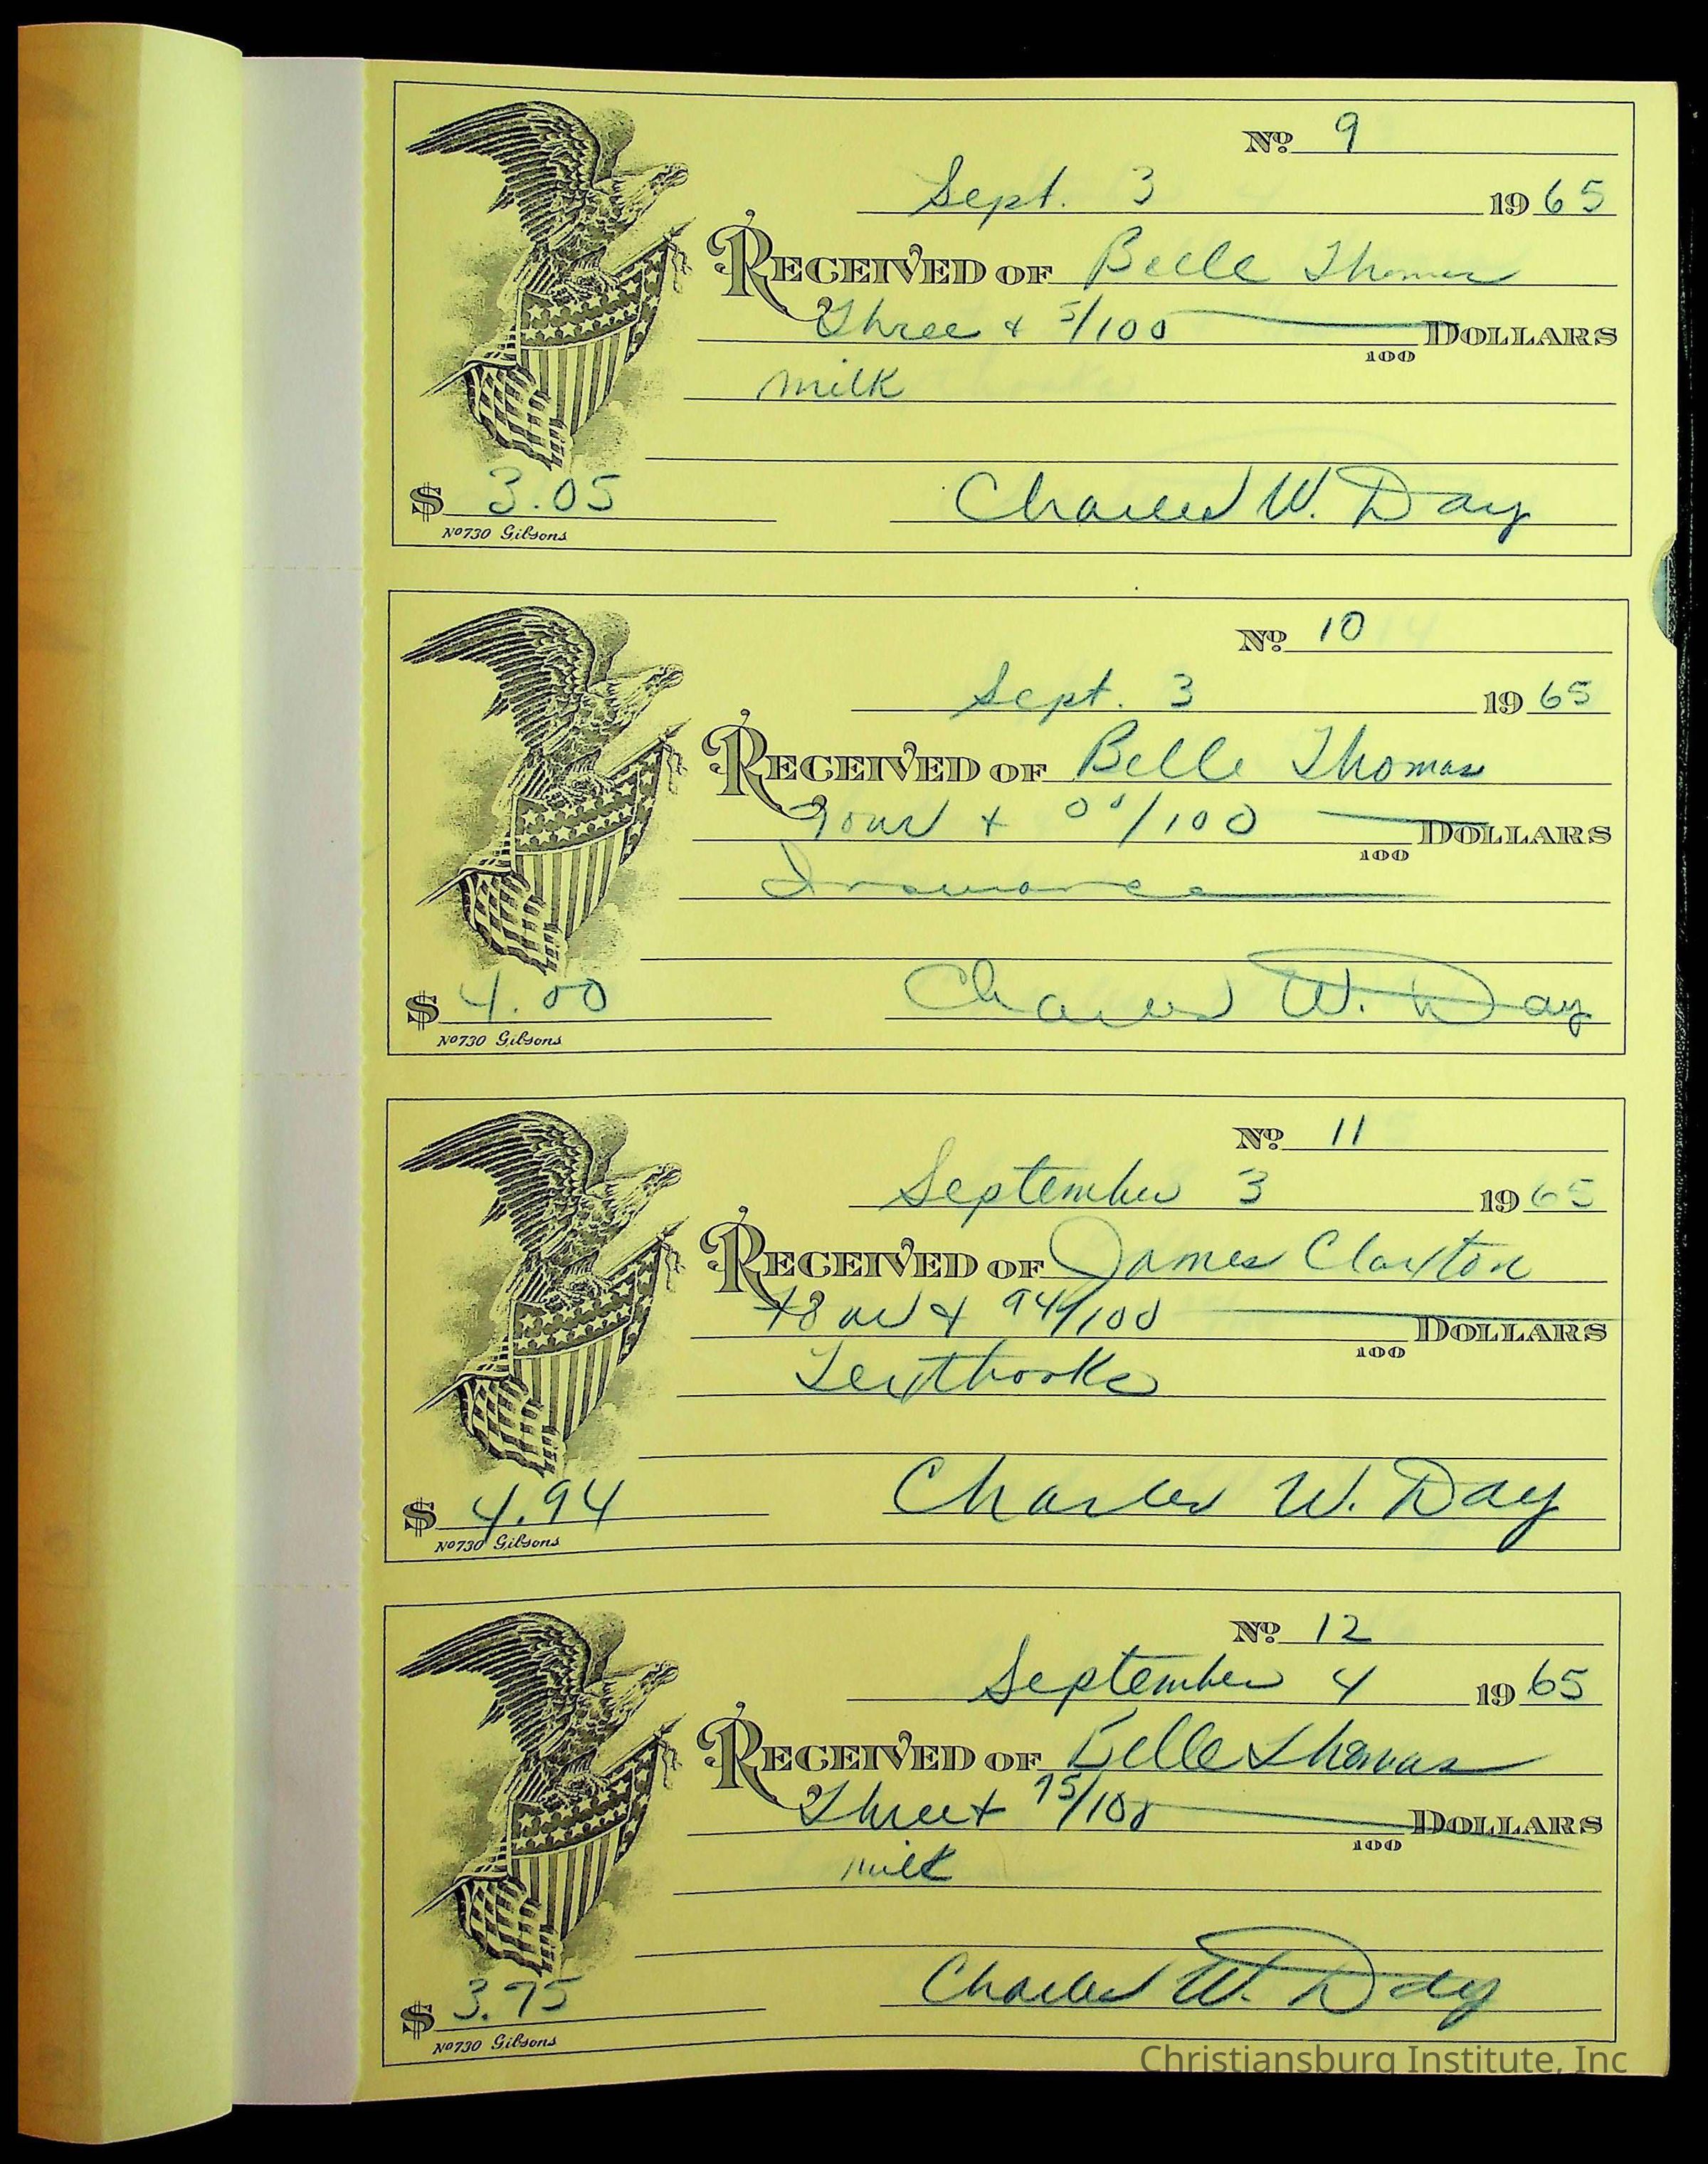 No 9
Sept. 3 1965
RECEIVED OF Belle Thomas
Three + 5/100 DOLLARS
100
milk
$ 3.05 Charles W. Day
No 730 Gibsons
No 10
Sept. 3 1965
RECEIVED OF Belle Thomas
Four + 00/100 DOLLARS
100
Insurance
$ 4.00 Charles W. Day
No 730 Gibsons
No 11
September 3 1965
RECEIVED OF James Claxton
Four + 94/100 DOLLARS
100
Textbooks
$ 4.94 Charles W. Day
No 730 Gibsons
No 12
September 4 1965
RECEIVED OF Belle Thomas
Three + 75/100 DOLLARS
100
milk
$ 3.75 Charles W. Day
No 730 Gibsons
Christiansburg Institute, Inc